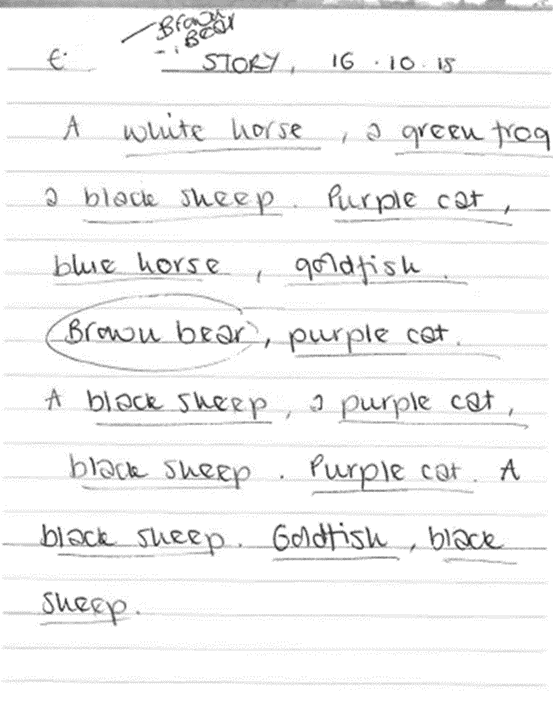 Brown
Bear
E. STORY, 16.10.15
A white horse, a green frog
a black sheep. Purple cat,
blue horse, goldfish.
Brown bear, purple cat.
A black sheep, a purple cat,
black sheep. Purple cat. A
black sheep. Goldfish, black
sheep.